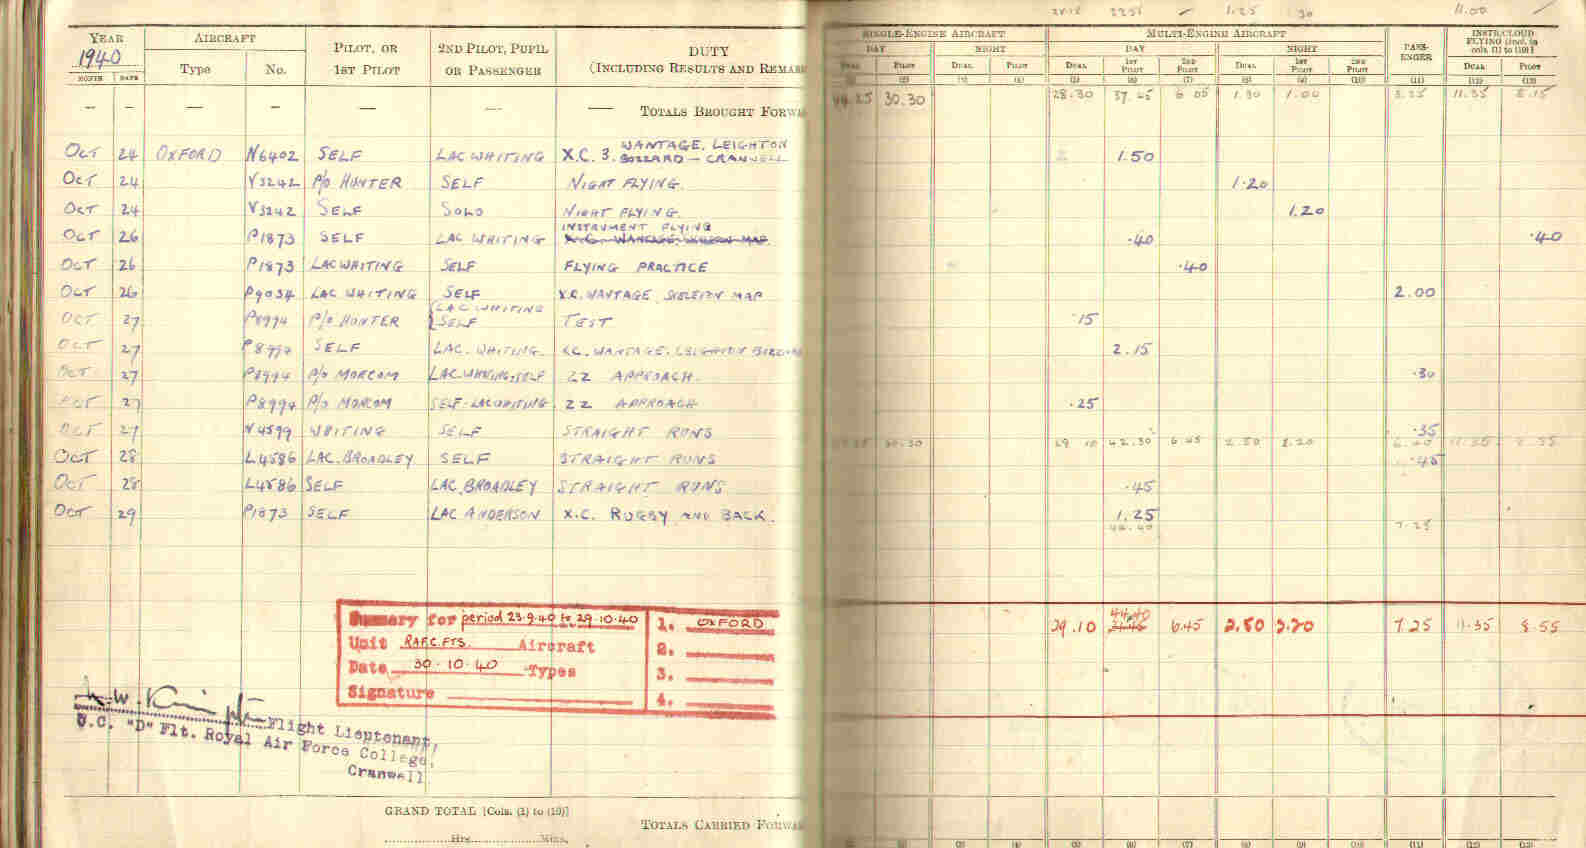 21.15 22.55 1.25 .30 11.00
YEAR AIRCRAFT PILOT, OR 2ND PILOT, PUPIL DUTY SINGLE-ENGINE AIRCRAFT MULTI-ENGINE AIRCRAFT PASS- INSTR/CLOUD
1940 Type No. 1ST PILOT OR PASSENGER (INCLUDING RESULTS AND REMARK DAY NIGHT DAY NIGHT ENGER FLYING [Incl. in cols. (1) to (10)]
MONTH DATE PILOT DUAL PILOT DUAL 1ST PILOT 2ND PILOT DUAL 1ST PILOT 2ND PILOT DUAL PILOT
(2) (3) (4) (5) (6) (7) (8) (9) (10) (11) (12) (13)
— — — — — — — TOTALS BROUGHT FORWA 30.30 28.30 37.45 6.05 1.30 1.00 11.35 8.15
OCT 24 OXFORD N6402 SELF LAC WHITING X.C. 3. WANTAGE, LEIGHTON BUZZARD — CRANWELL 1.50
OCT 24 V3242 P/O HUNTER SELF NIGHT FLYING. 1.20
OCT 24 V3242 SELF SOLO NIGHT FLYING. 1.20
OCT 26 P1873 SELF LAC WHITING INSTRUMENT FLYING X.C. WANTAGE, SKELETON MAP. .40 .40
OCT 26 P1873 LAC WHITING SELF FLYING PRACTICE .40
OCT 26 P9034 LAC WHITING SELF X.C. WANTAGE SKELETON MAP 2.00
OCT 27 P8994 P/O HUNTER { LAC WHITING SELF TEST .15
OCT 27 P8994 SELF LAC. WHITING. X.C. WANTAGE. LEIGHTON BUZZARD 2.15
OCT 27 P8994 P/O MORCOM LAC. WHITING, SELF ZZ APPROACH. .30
OCT 27 P8994 P/O MORCOM SELF - LAC WHITING. ZZ APPROACH .25
OCT 27 N4599 WHITING SELF STRAIGHT RUNS .35
30.30 29.10 42.30 6.45 2.50 2.20 6.40 11.35 8.55
OCT 28 L4586 LAC. BROADLEY SELF STRAIGHT RUNS .45
OCT 28 L4586 SELF LAC BROADLEY STRAIGHT RUNS .45
OCT 29 P1873 SELF LAC ANDERSON X.C. RUGBY AND BACK. 1.25
44.40 7.25
Summary for period 23.9.40 to 29.10.40 1. OXFORD
Unit R.A.F.C.F.T.S. Aircraft 2.
Date 30.10.40 Types 3.
Signature 4.
44.40
29.10 6.45 2.50 2.20 7.25 11.35 8.55
Flight Lieutenant,
O.C. "D" Flt. Royal Air Force College,
Cranwell
GRAND TOTAL [Cols. (1) to (10)]
Hrs. Mins.
TOTALS CARRIED FORWA
(3) (4) (5) (6) (7) (8) (9) (10) (11) (12) (13)